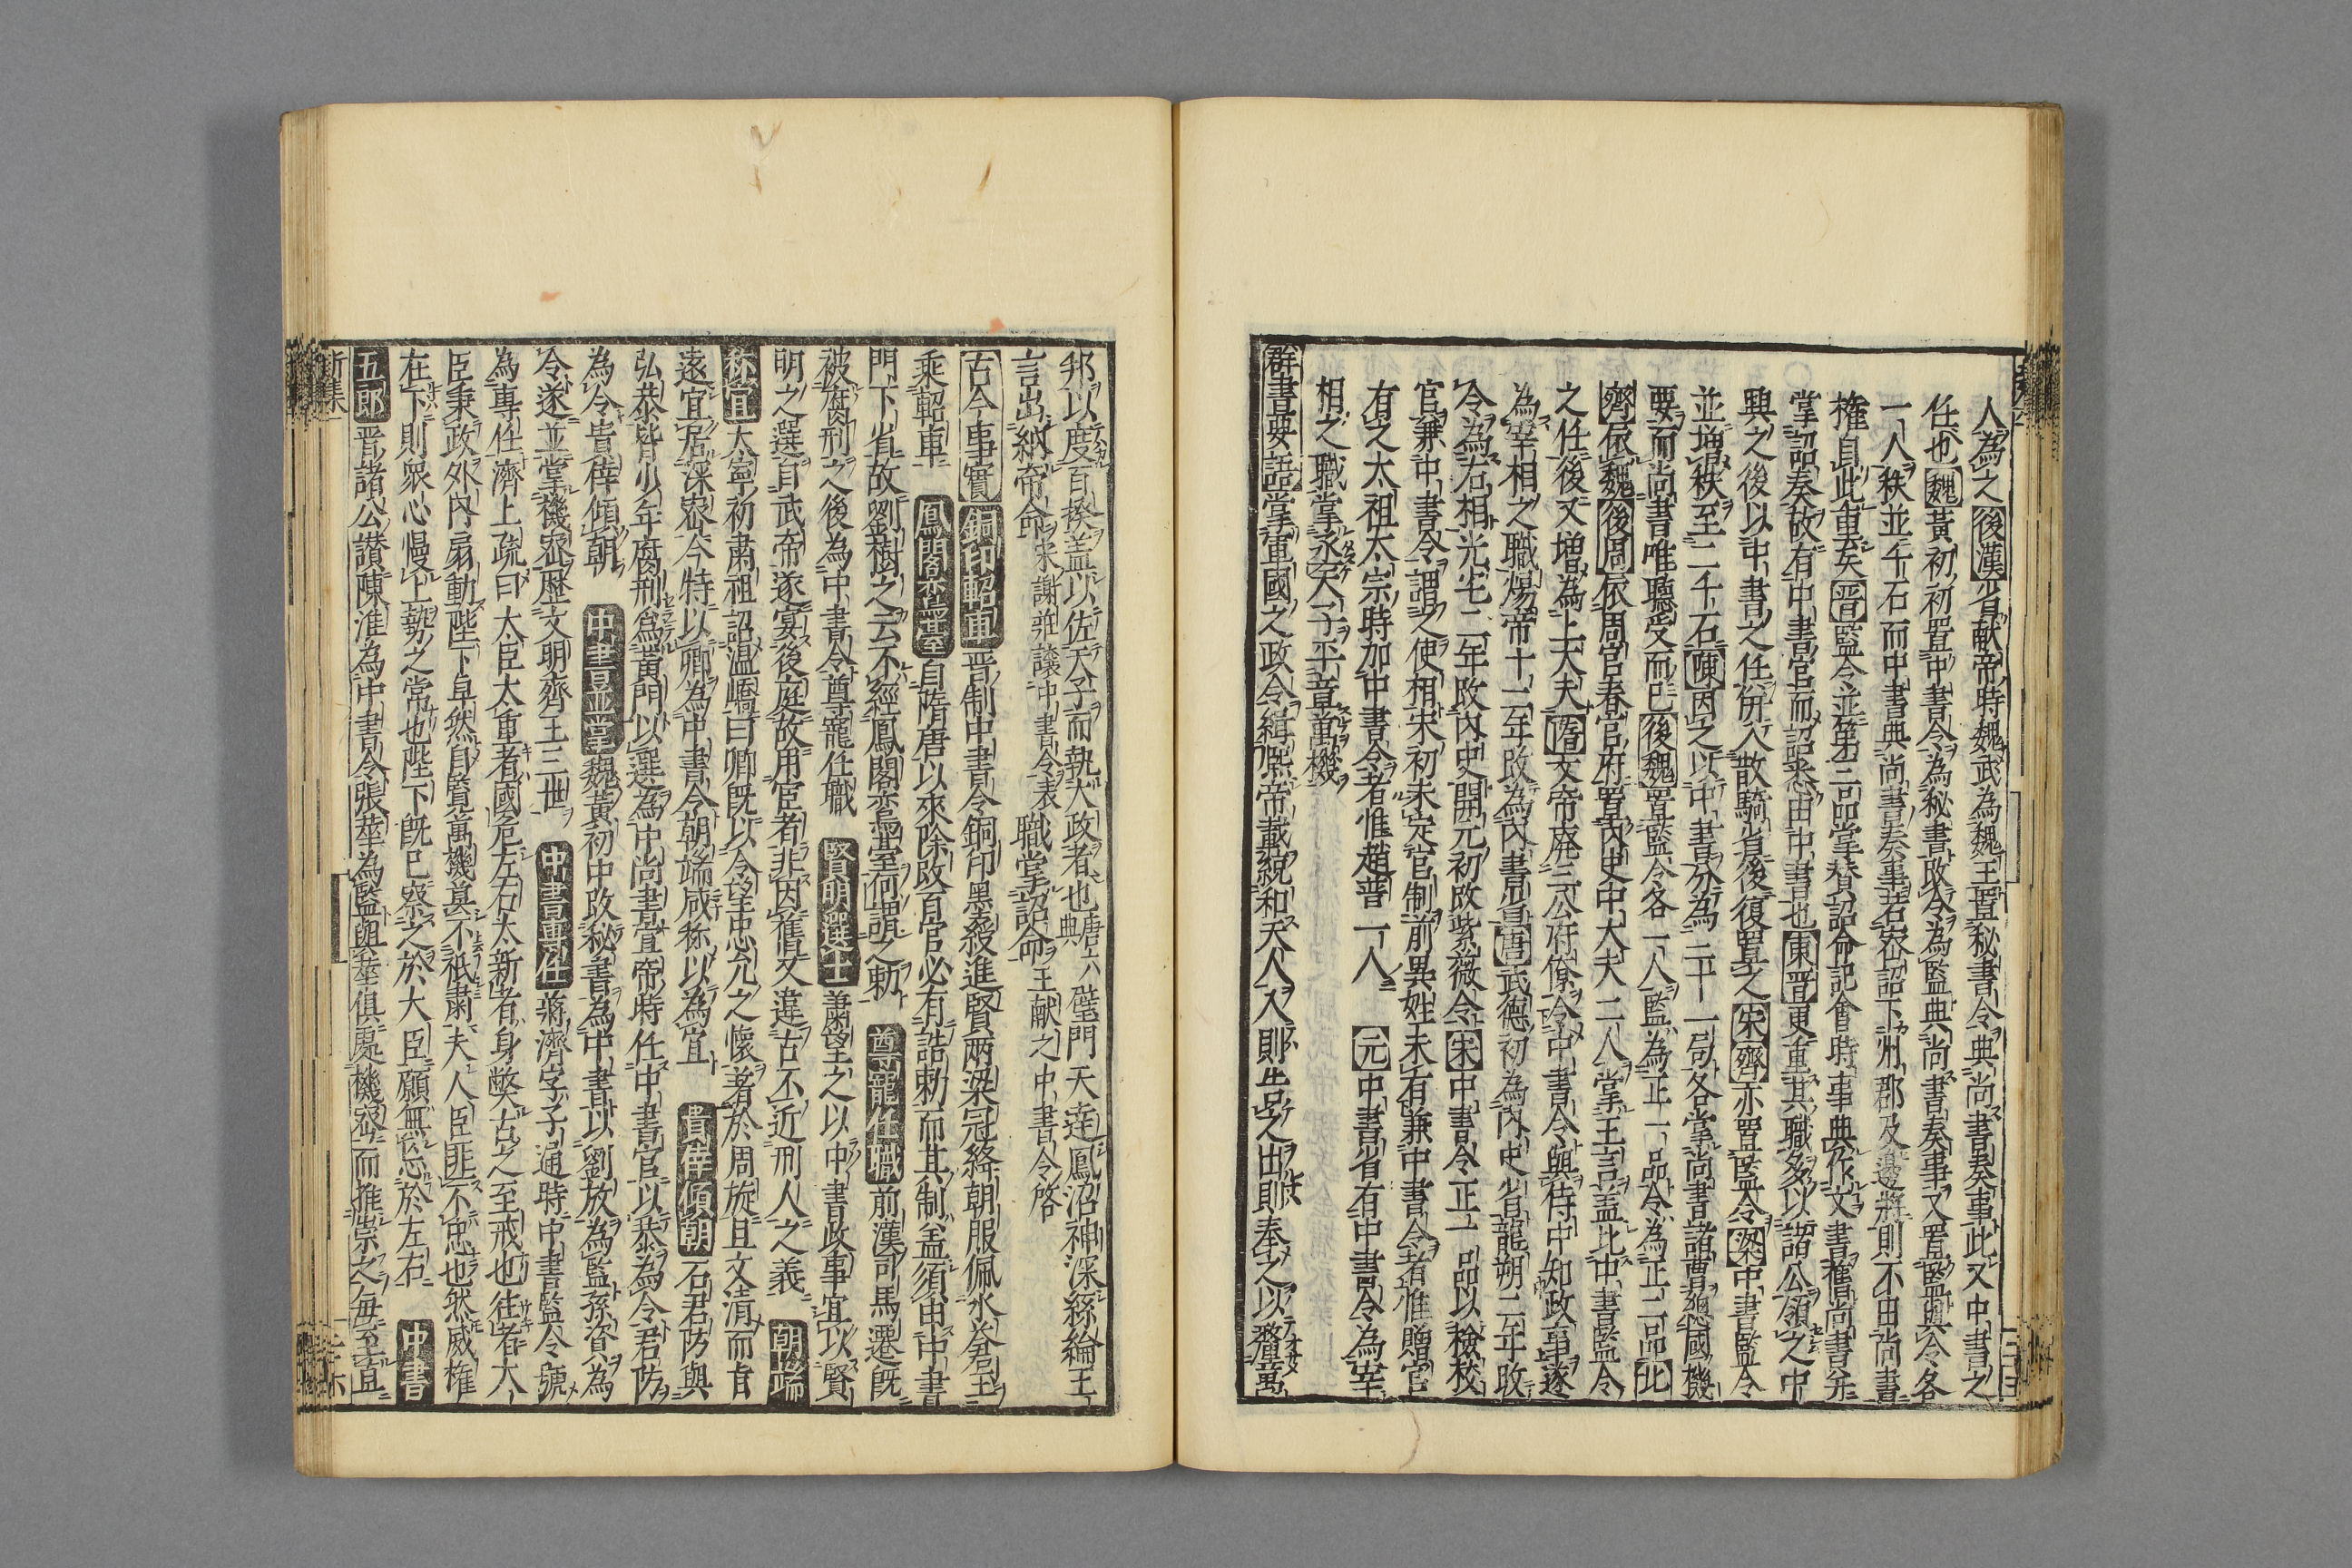 人為之後漢省獻帝時魏武為魏王置秘書令典尚書奏事此又中書之
任也魏黃初初置中書令為秘書改令為監典尚書奏事又置監與令各
一人秩並千石而中書典尚書奏事若密詔下州郡及邊將則不由尚書
權自此重矣晉監令並第三品掌賛詔命記會時事典作文書舊尚書并
掌詔奏故有中書官而詔悉由中書也東晉更重其職多以諸公領之中
興之後以中書之任併入散騎省後復置之宋齊亦置監令梁中書監令
並增秩至二千石陳因之以中書分為二十一局各掌尚書諸曹總國機
要而尚書唯聽受而已後魏置監令各一人監為正一品令為正二品北
齊依魏後周依周官春官府置內史中大夫二人掌王言蓋比中書監令
之任後又增為上大夫隋文帝廃三公府僚令中書令與侍中知政事遂
為宰相之職煬帝十二年改為內書省唐武德初為內史省龍朔二年改
令為右相光宅二年改內史開元初改紫薇令宋中書令正一品以檢校
官兼中書令謂之使相宋初未定官制前異姓未有兼中書令者惟贈官
有之太祖太宗時加中書令者惟趙普一人 元中書省有中書令為宰
相之職掌丞天子平章萬機
群書要語掌軍國之政令緝熙帝載統和天人入則告之出則奉之以釐萬
邦以度百揆盖以佐天子而執大政者也唐六典 璧門天遠鳳沼神深絲綸王
言出納帝命宋謝莊讓中書令表 職掌詔命王献之中書令啓
古今事實 銅印軺車 晉制中書令銅印黑綬進賢兩梁冠絳朝服佩水蒼玉
乘軺車 鳳閣鸞臺 自隋唐以來除改百官必有誥勅而其制盖須由中書
門下省故劉樹之云不經鳳閣鸞臺何謂之勅 尊寵任職 前漢司馬遷既
被腐刑之後為中書令尊寵任職 賢明選士 蕭望之以中書政事宜以賢
明之選自武帝遂宴後庭故用宦者非因舊又違古不近刑人之義 朝端
称宜 大寧初肅祖詔温嶠曰卿既以令望忠允之懷著於周旋且文清而旨
遠宜居深密今特以卿為中書令朝端咸称以為宜 貴倖傾朝 石君防與
弘恭皆少年腐刑為黃門以選為中尚書宣帝時任中書官以恭為令君防
為令貴倖傾朝 中書並掌 魏黃初中改秘書為中書以劉放為監孫資為
令遂並掌機密歷文明齊王三世 中書專任 蔣濟字子通時中書監令號
為專任濟上疏曰大臣太重者國危左右太新者身弊古之至戒也往者大
臣秉政外內扇動陛下卓然自覽萬機莫不祇肅夫人臣匪不忠也然威權
在下則衆心慢上勢之常也陛下既已察之於大臣願無忘於左右 中書
五郎 晋諸公讃陳淮為中書令張華為監與華俱處機密而推崇之每至直
新集